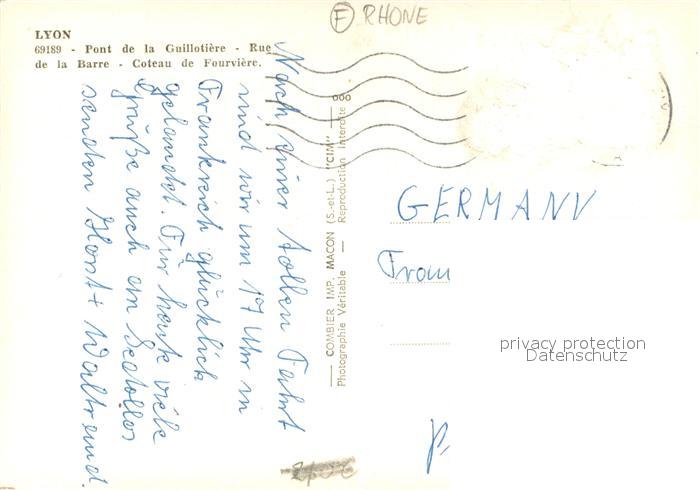 F RHONE
LYON
69189 - Pont de la Guillotière - Rue
de la Barre - Coteau de Fourvière.
Nach einer tollen Fahrt
sind wir um 17 Uhr in
Frankreich glücklich
gelandet. Für heute viele
Grüße auch an
senden Horst + Waltraud
COMBIER IMP. MACON (S.-et-L.) "CIM"
Photographie Véritable — Reproduction Interdite
GERMANY
privacy protection
Datenschutz